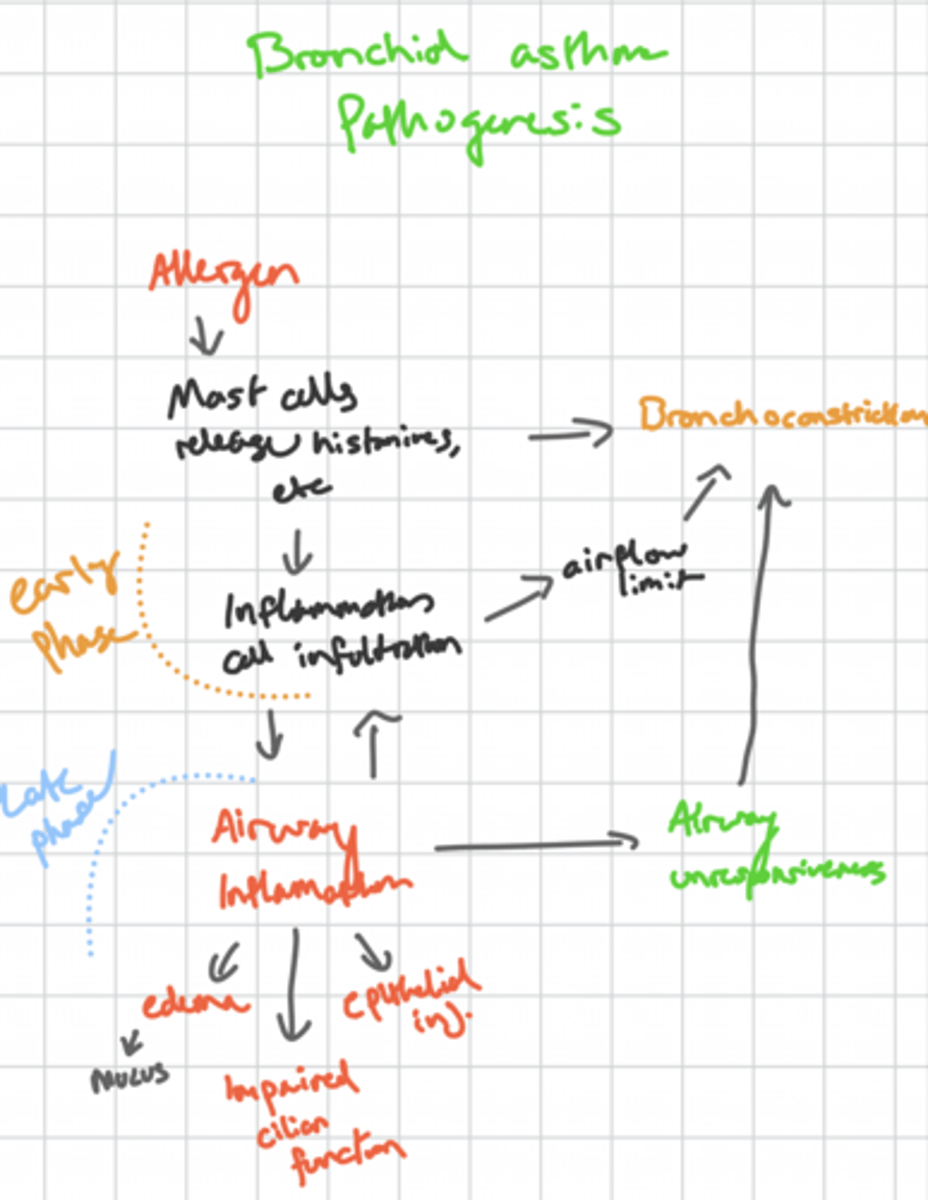 Bronchial asthma
Pathogenesis
Allergen
Mast cells
release histamines,
etc
Bronchoconstriction
early
phase
Inflammation
cell infiltration
airflow
limit
Late
phase
Airway
Inflammation
Airway
unresponsiveness
edema
epithelial
inj.
mucus
Impaired
cilian
function